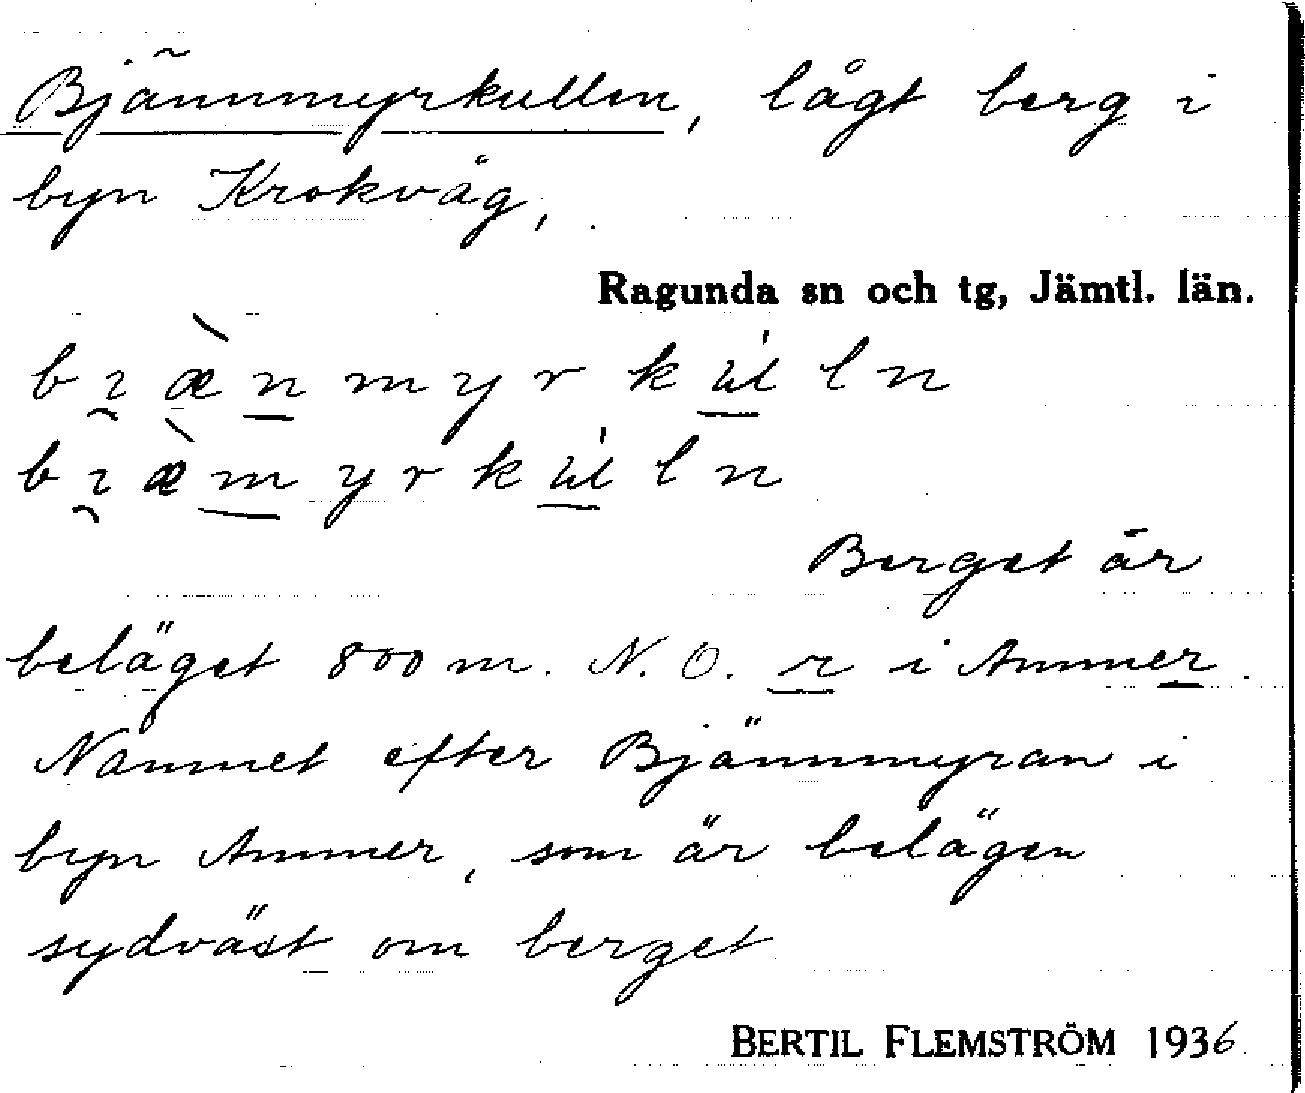 Bjännmyrkullen, lågt berg i
byn Krokvåg,
Ragunda sn och tg, Jämtl. län.
bɪ̯æ̀n̲myrkú̲lln
bɪ̯æ̀m̲yrkú̲lln
Berget är
beläget 800 m. N. O. r i Ammer.
Namnet efter Bjännmyran i
byn Ammer, som är belägen
sydväst om berget
BERTIL FLEMSTRÖM 1936